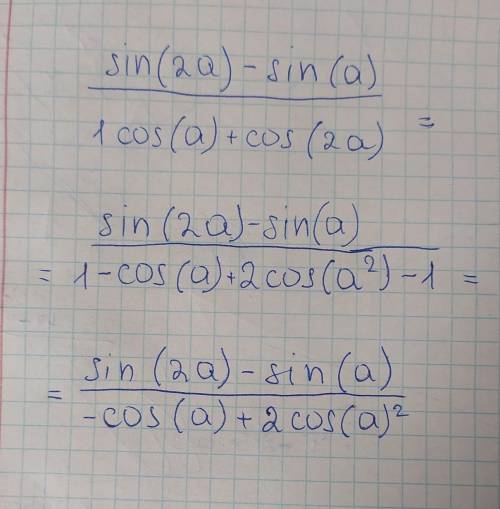 sin(2a) - sin(a)
1 cos(a) + cos(2a) =
sin(2a) - sin(a)
= 1 - cos(a) + 2cos(a²) - 1 =
= sin(2a) - sin(a)
- cos(a) + 2cos(a)²